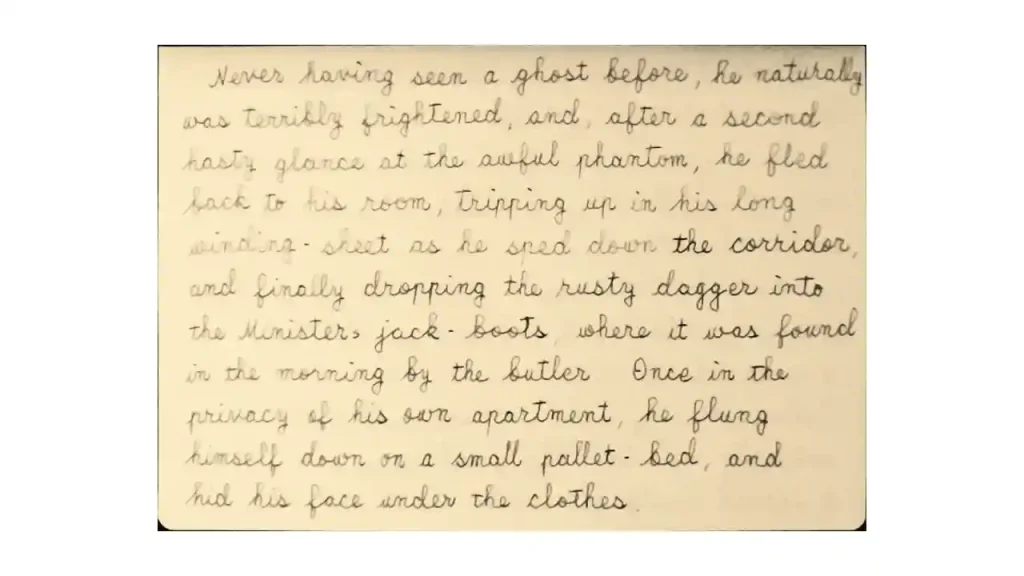 Never having seen a ghost before, he naturally
was terribly frightened, and, after a second
hasty glance at the awful phantom, he fled
back to his room, tripping up in his long
winding-sheet as he sped down the corridor,
and finally dropping the rusty dagger into
the Minister, jack-boots, where it was found
in the morning by the butler Once in the
privacy of his own apartment, he flung
himself down on a small pallet-bed, and
hid his face under the clothes.